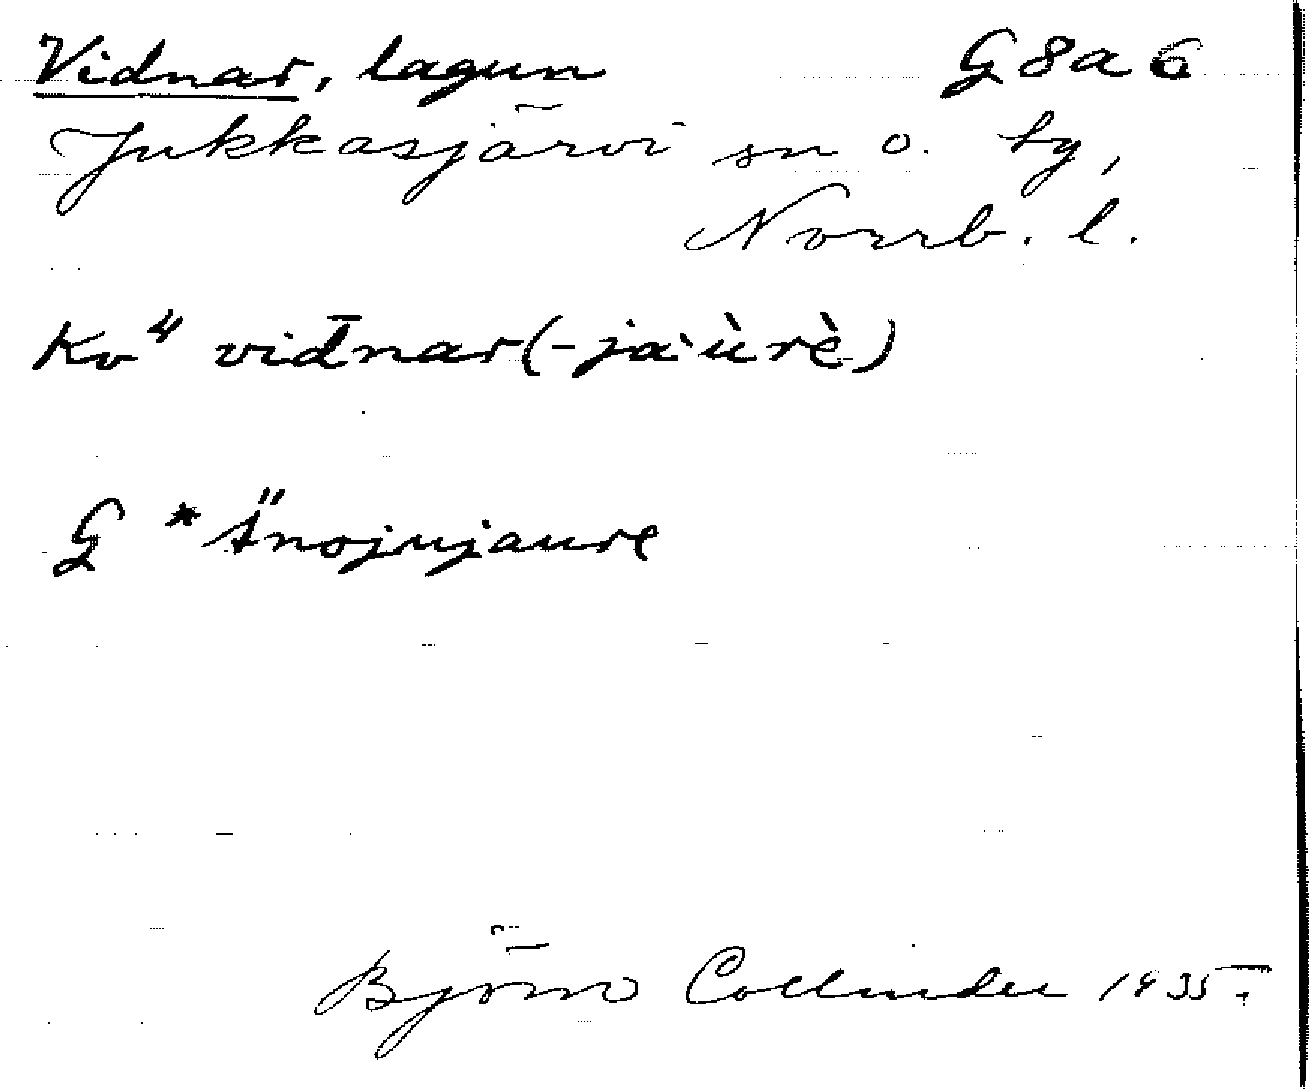 Vidnar, lagun G8a6
Jukkasjärvi sn o. by,
Norrb. l.
Kv⁴ viđnar(-ja`ùrè)
G *Änojnjaure
Björn Collinder 1935.